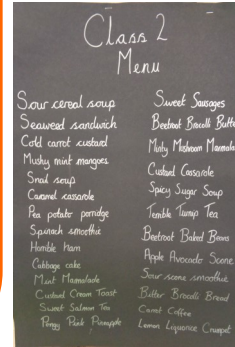 Class 2
Menu
Sour cereal soup
Seaweed sandwich
Cold carrot custard
Mushy mint mangoes
Snail soup
Caramel cassarole
Pea potato porridge
Spinach smoothie
Horrible Ham
Cabbage cake
Mint Mamalade
Custard Cream Toast
Sweet Salmon Tea
Pongy Pink Pineapple
Sweet Sausages
Beetroot Brocolli Butte
Minty Mushroom Marmala
Custard Cassarole
Spicy Sugar Soup
Terrible Turnip Tea
Beetroot Baked Beans
Apple Avocado Scone
Sour scone smoothie
Butter Brocolli Bread
Carrot Coffee
Lemon Liquorice Crumpet